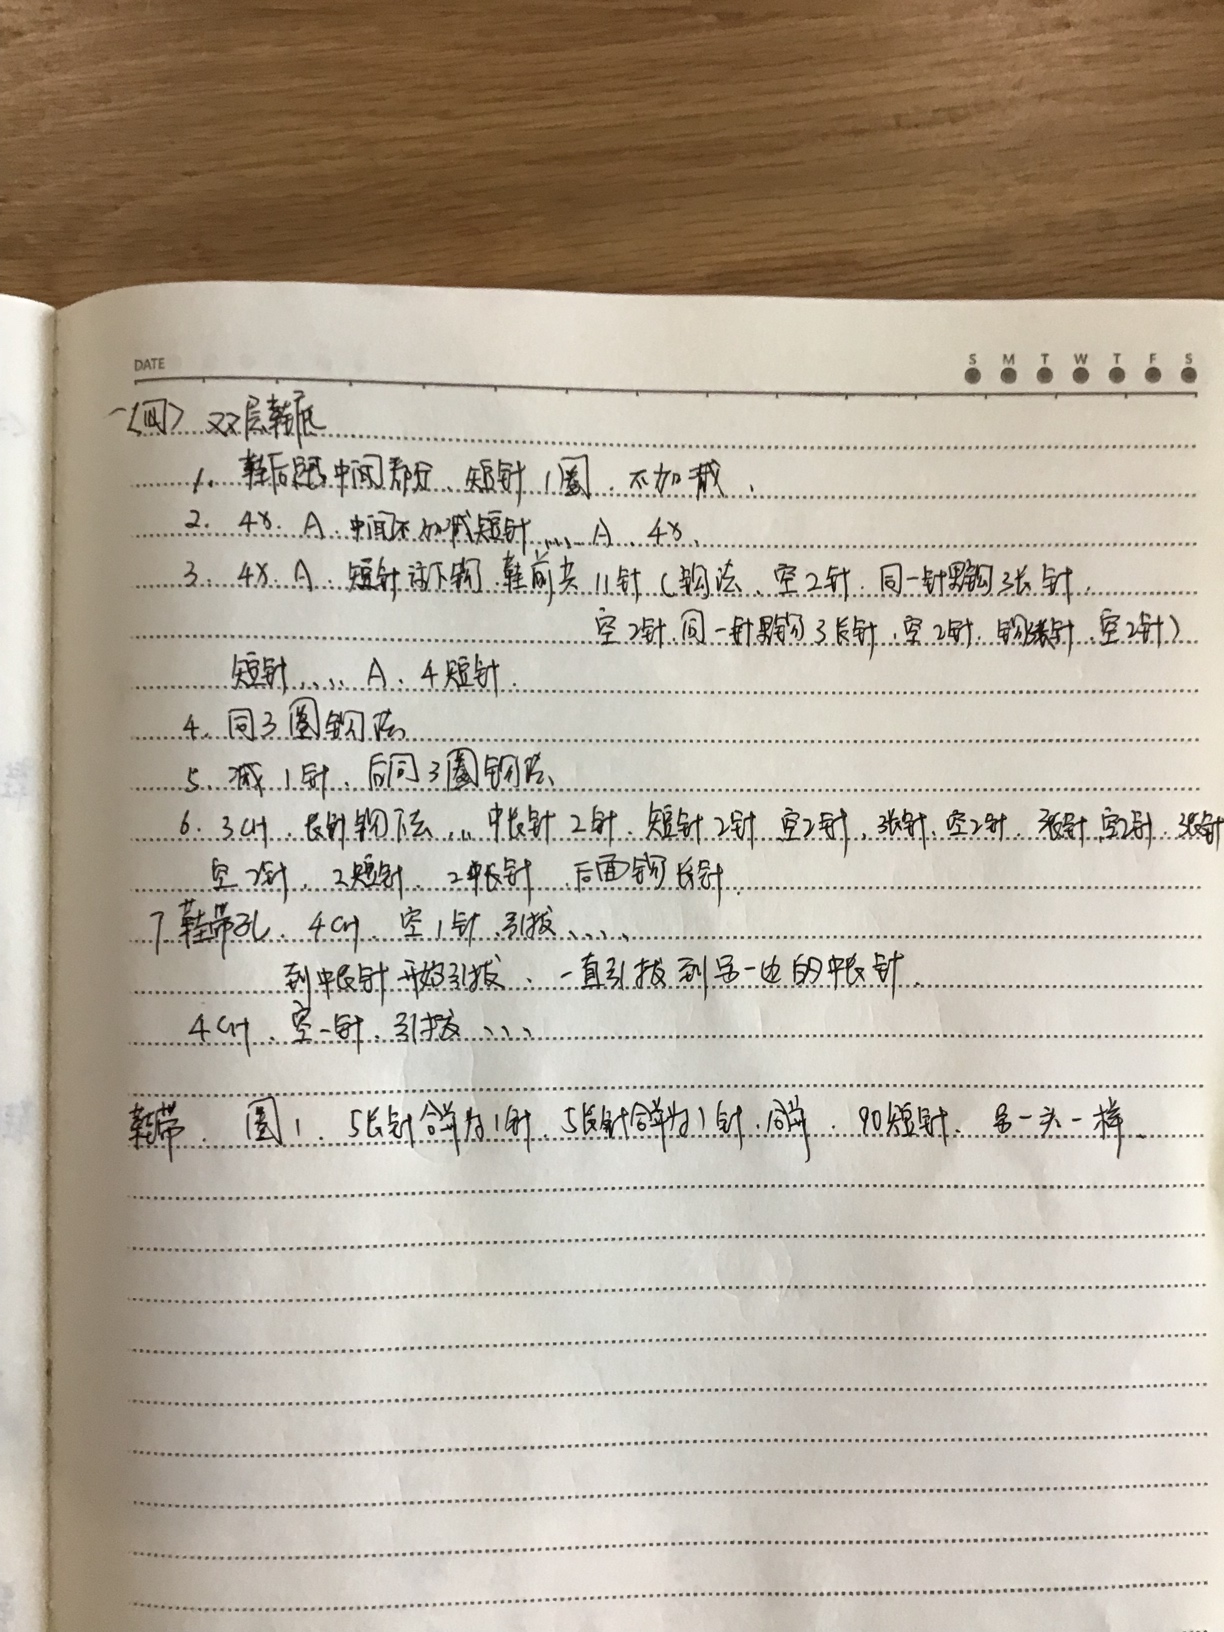 DATE
S M T W T F S
〈四〉 双层鞋底
1. 鞋后跟中间部分、短针1圈、不加减、
2. 4X. A. 中间不加减短针.... A. 4X.
3. 4X. A. 短针 鞋前夹11针(钩法、空2针. 同一针里钩3长针.
空2针. 同一针里钩3长针. 空2针. 钩3长针. 空2针)
短针.... A. 4短针.
4. 同3圈钩法
5. 减1针、后同3圈钩法、
6. 3CH. 长针钩下去... 中长针2针. 短针2针 空2针, 3长针. 空2针. 3长针. 空2针. 3长针
空2针. 2短针. 2中长针 后面钩长针.
7 鞋带孔. 4CH. 空1针. 引拔、、、、
到中长针开始引拔、一直引拔到另一边的中长针.
4CH. 空一针. 引拔、、、
鞋带. 圈1. 5长针合并为1针. 5长针合并为1针. 合并. 90短针. 另一头一样.